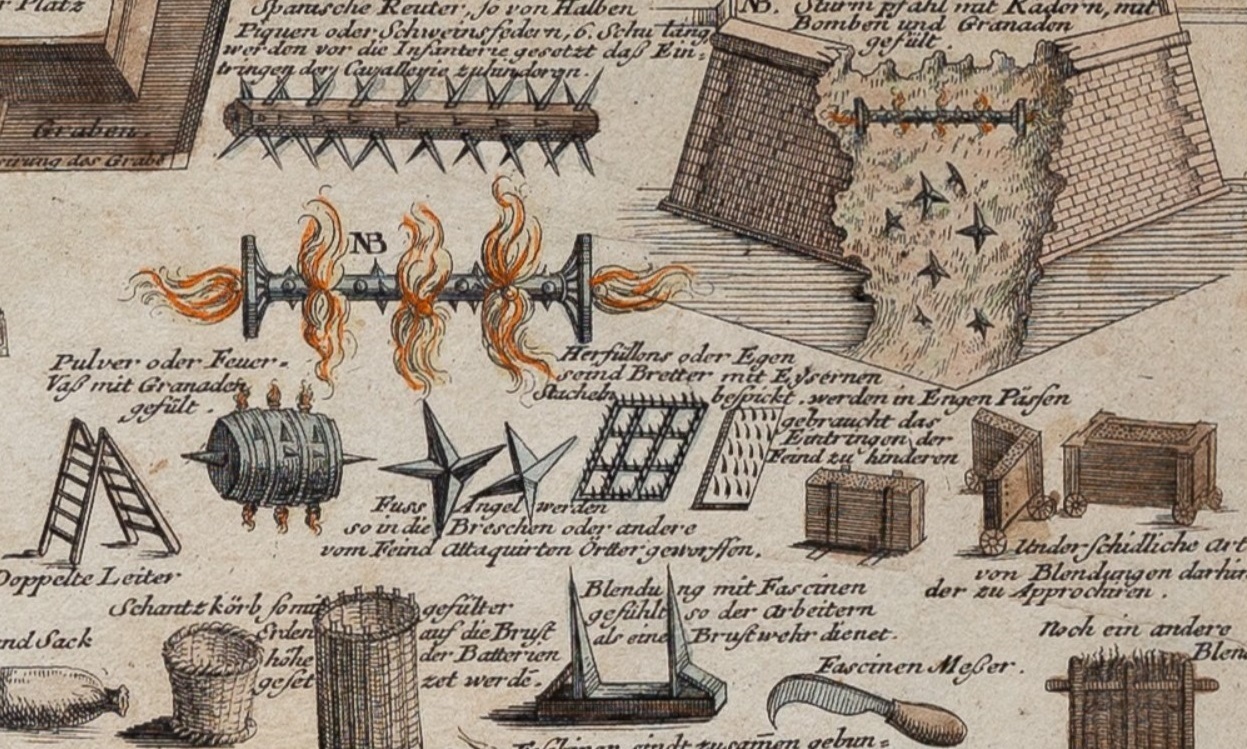 r Platz
Graben.
irung des Grabe
Spanische Reuter, so von Halben
Piquen oder Schweinsfedern, 6. Schu lang
werden vor die Infanterie gesetzt daß Ein-
tringen der Cavallerie zuhinderen.
NB. Sturm pfahl mit Rädern, mit
Bomben und Granaden
gefült.
NB
Pulver oder Feuer-
Vaß mit Granaden
gefült.
Herfüllons oder Egen
seind Bretter mit Eysernen
Stacheln bespickt. werden in Engen Pässen
gebraucht das
Eintringen der
Feind zu hinderen
Fuss Angel werden
so in die Breschen oder andere
vom Feind Attaquirten Örtter geworffen.
Doppelte Leiter
Underschidliche Art
von Blendungen darhin
der zu Approchiren.
Schantzkörb so mit gefülter
Erden auf die Brust
höhe der Batterien
geset zet werdē.
Blendung mit Fascinen
gefühlt so der Arbeitern
als eine Brustwehr dienet.
nd Sack
Fascinen Meßer.
Noch ein andere
Blen
zusam̄en gebun-